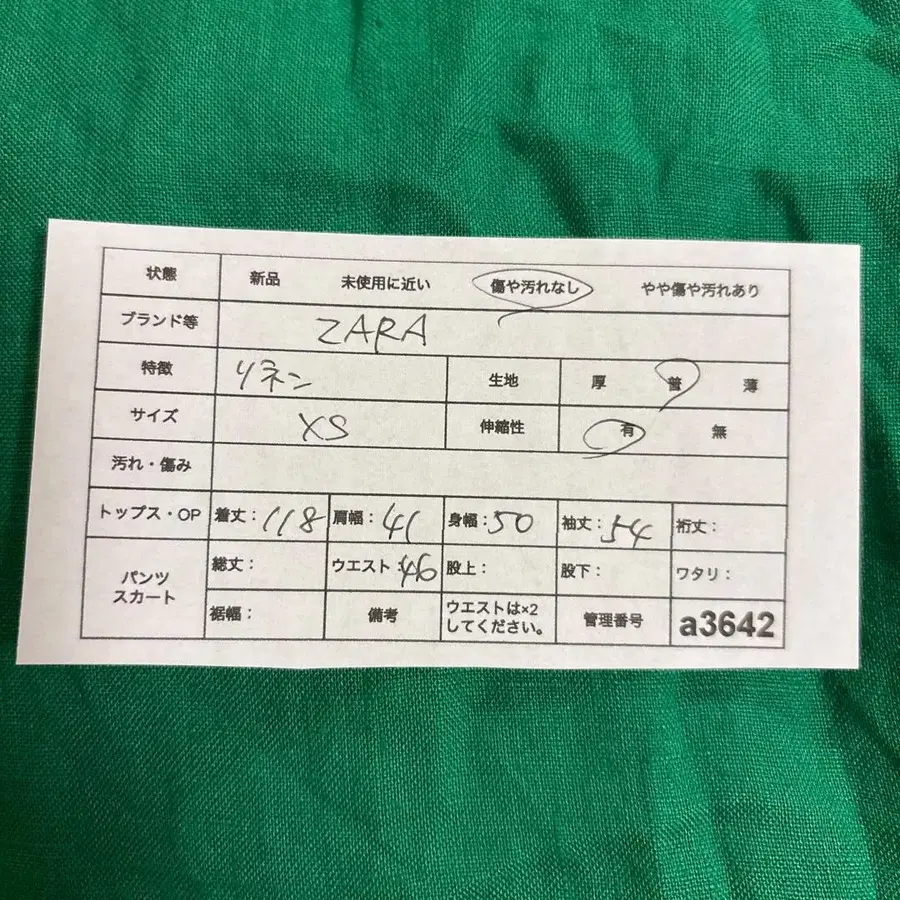 状態 新品 未使用に近い 傷や汚れなし やや傷や汚れあり
ブランド等 ZARA
特徴 リネン 生地 厚 普 薄
サイズ XS 伸縮性 有 無
汚れ・傷み
トップス・OP 着丈：118 肩幅：41 身幅：50 袖丈：54 裄丈：
パンツ スカート 総丈： ウエスト：46 股上： 股下： ワタリ：
裾幅： 備考 ウエストは×2 してください。 管理番号 a3642